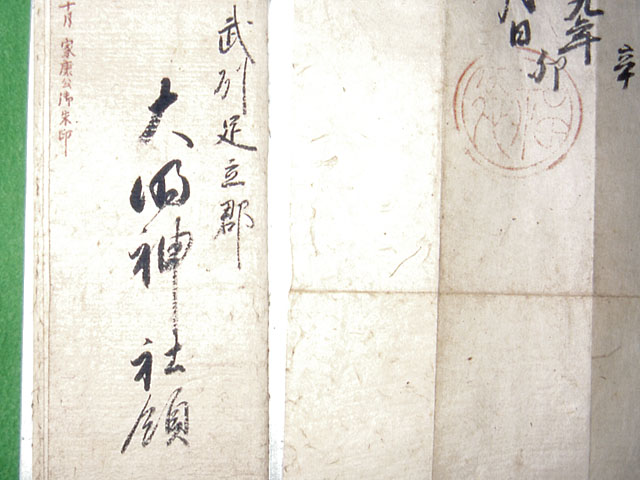 九年辛卯
日
福徳
武州足立郡
大明神社領
十月 家康公御朱印